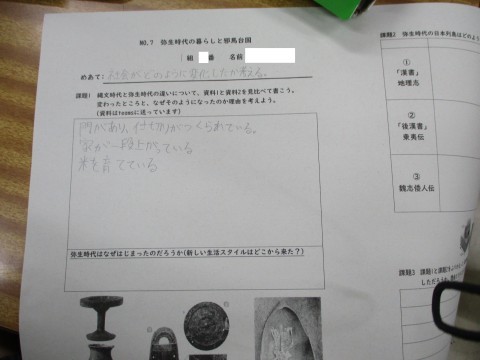 NO.7 弥生時代の暮らしと邪馬台国
組 番 名前
めあて: 社会がどのように変化したか考える。
課題1 縄文時代と弥生時代の違いについて、資料1と資料2を見比べて書こう。
変わったところと、なぜそのようになったのか理由を考えよう。
(資料はteamsに送っています)
門があり、仕切りがつくられている。
家が一段上がっている
米を育てている
弥生時代はなぜはじまったのだろうか(新しい生活スタイルはどこから来た?)
課題2 弥生時代の日本列島はどのよう
①
『漢書』
地理志
②
『後漢書』
東夷伝
③
魏志倭人伝
課題3 課題1と課題2をふ